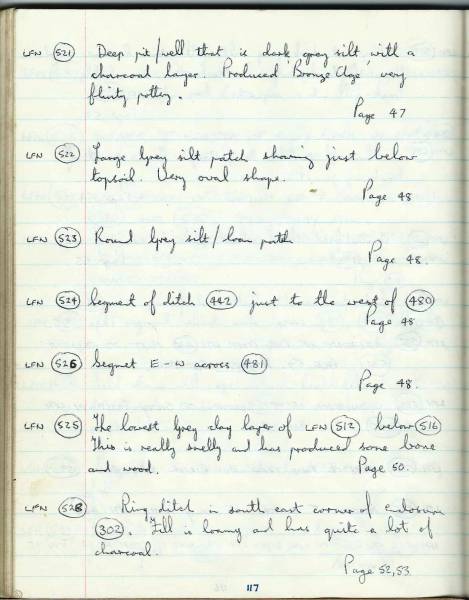 LFN 521 Deep pit/well that is dark grey silt with a
charcoal layer. Produced 'Bronze Age' very
flinty pottery.
Page 47
LFN 522 Large Grey silt patch showing just below
topsoil. Very oval shape.
Page 48
LFN 523 Round Grey silt/loam patch
Page 48.
LFN 524 Segment of ditch 442 just to the west of 480
Page 48
LFN 526 Segmet E-W across 481
Page 48.
LFN 525 The lowest Grey clay layer of LFN 512 below 516
This is really smelly and has produced some bone
and wood. Page 50.
LFN 528 Ring ditch in south east corner of enclosure
302. Fill is loamy and has quite a lot of
charcoal.
Page 52,53.
117